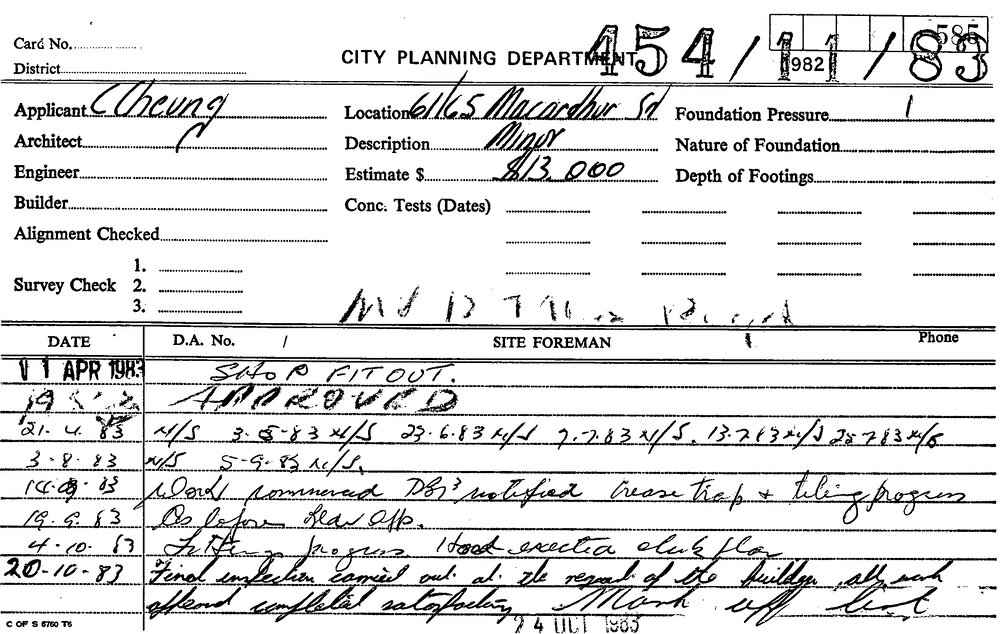 585
Card No.
CITY PLANNING DEPARTMENT 454/11/83
1982
District
Applicant C Cheung Location 61/65 Macarthur St Foundation Pressure
Architect Description Minor Nature of Foundation
Engineer Estimate $ $13,000 Depth of Footings
Builder Conc. Tests (Dates)
Alignment Checked
1.
Survey Check 2.
3.
DATE D.A. No. / SITE FOREMAN Phone
11 APR 1983 SHOP FIT OUT.
APPROVED
21. 4. 83 N/S 3-5-83 N/S 23.6.83 N/S 7.7.83 N/S. 13.7.83 N/S 25.7.83 N/S
3-8-83 N/S 5-9-83 N/S.
83 Work commenced notified Grease trap + tiling progress
19.9.83 As before
4-10-83 Fittings progress. Hood erected
20-10-83 Final inspection carried out at the request of the builder, all work
completed satisfactory Mark off
24 OCT 1983
C OF S 5760 T6